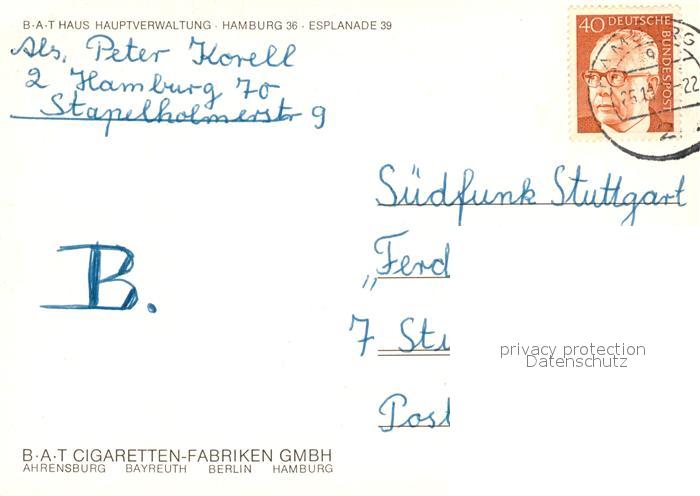 B·A·T HAUS HAUPTVERWALTUNG · HAMBURG 36 · ESPLANADE 39
Abs. Peter Korell
2 Hamburg 70
Stapelholmerstr 9
40 DEUTSCHE
BUNDESPOST
Südfunk Stuttgart
„Ferd
B.
7 Stu
privacy protection
Datenschutz
Post
B·A·T CIGARETTEN-FABRIKEN GMBH
AHRENSBURG BAYREUTH BERLIN HAMBURG